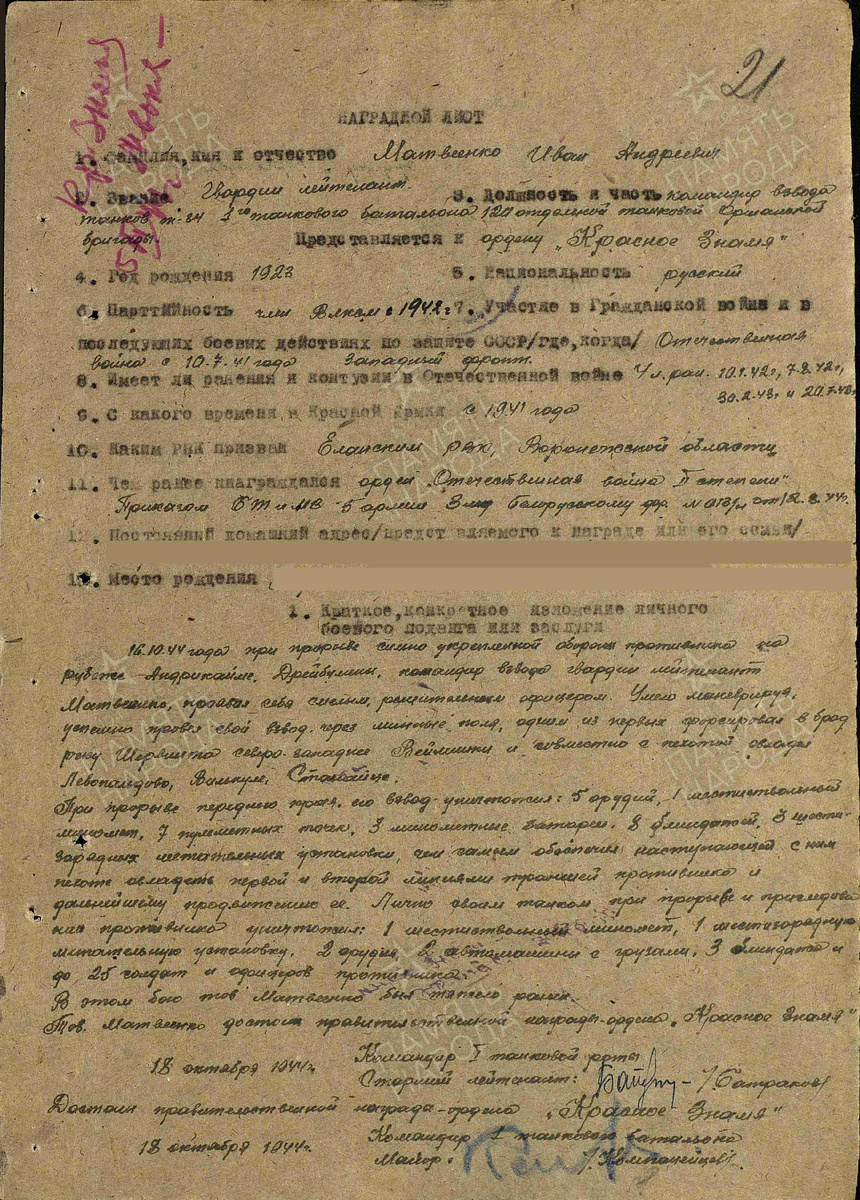 21
Кр. Знамя
НАГРАДНОЙ ЛИСТ
1. Фамилия, имя и отчество Матвеенко Иван Андреевич
2. Звание Гвардии лейтенант. 3. Должность и часть командир взвода
танков т-34 1го танкового баталиона 120 отдельной танковой Оршанской
бригады.
Представляется к ордену „Красное Знамя"
4. Год рождения 1923 5. Национальность русский
6. Парттийность член Влксм с 1942г 7. Участие в Гражданской войне и в
последующих боевых действиях по защите СССР/где, когда/ Отечественная
война с 10.7.41 года Западный фронт.
8. Имеет ли ранения и контузии в Отечественной войне 10.1.42г, 7.8.42г,
30.2.43г и 20.7.43г
9. С какого времени в Красной Армии с 1941 года
10. Каким РВК призван Еланским рвк, Воронежской области
11. Чем ранее награждался орден „Отечественная война II степени"
Приказом БТ и МВ 5 армии 3му Белорусскому фр. от 12.8.44г.
12. Постоянный домашний адрес/представляемого к награде или его семьи/
13. Место рождения
1. Краткое, конкретное изложение личного
боевого подвига или заслуги
16.10.44 года при прорыве сильно укрепленной обороны противника на
рубеже Андрикайме, Дрейбулины, командир взвода гвардии лейтенант
Матвеенко, проявил себя смелым, решительным офицером. Умело маневрируя,
успешно провел свой взвод через минные поля, одним из первых форсировал в брод
реку Шервинта северо-западнее и совместно с пехотой овладел
Левопольдово, Вилькупе,
При прорыве переднего края, его взвод уничтожил: 5 орудий, 1 шестиствольный
миномет, 7 пулеметных точек, 3 минометные батареи, 8 блиндажей, 3 шести-
зарядных метательных установки, чем самым обеспечил наступающей с ним
пехоте овладеть первой и второй линиями траншей противника и
дальнейшему продвижению ее. Лично своим танком при прорыве и преследова
нии противника уничтожил: 1 шестиствольный миномет, 1 шестизарядную
метательную установку, 2 орудия, 2 автомашины с грузами, 3 блиндажа и
до 25 солдат и офицеров противника.
В этом бою тов Матвеенко был тяжело ранен.
Тов. Матвеенко достоин правительственной награды-ордена „Красное Знамя"
18 октября 1944г. Командир 1 танковой роты
Старший лейтенант: /Батраков/
Достоин правительственной награда-ордена „Красное Знамя"
18 октября 1944г. Командир 1 танкового батальона
Майор: /Компанейцев/
ПАМЯТЬ НАРОДА